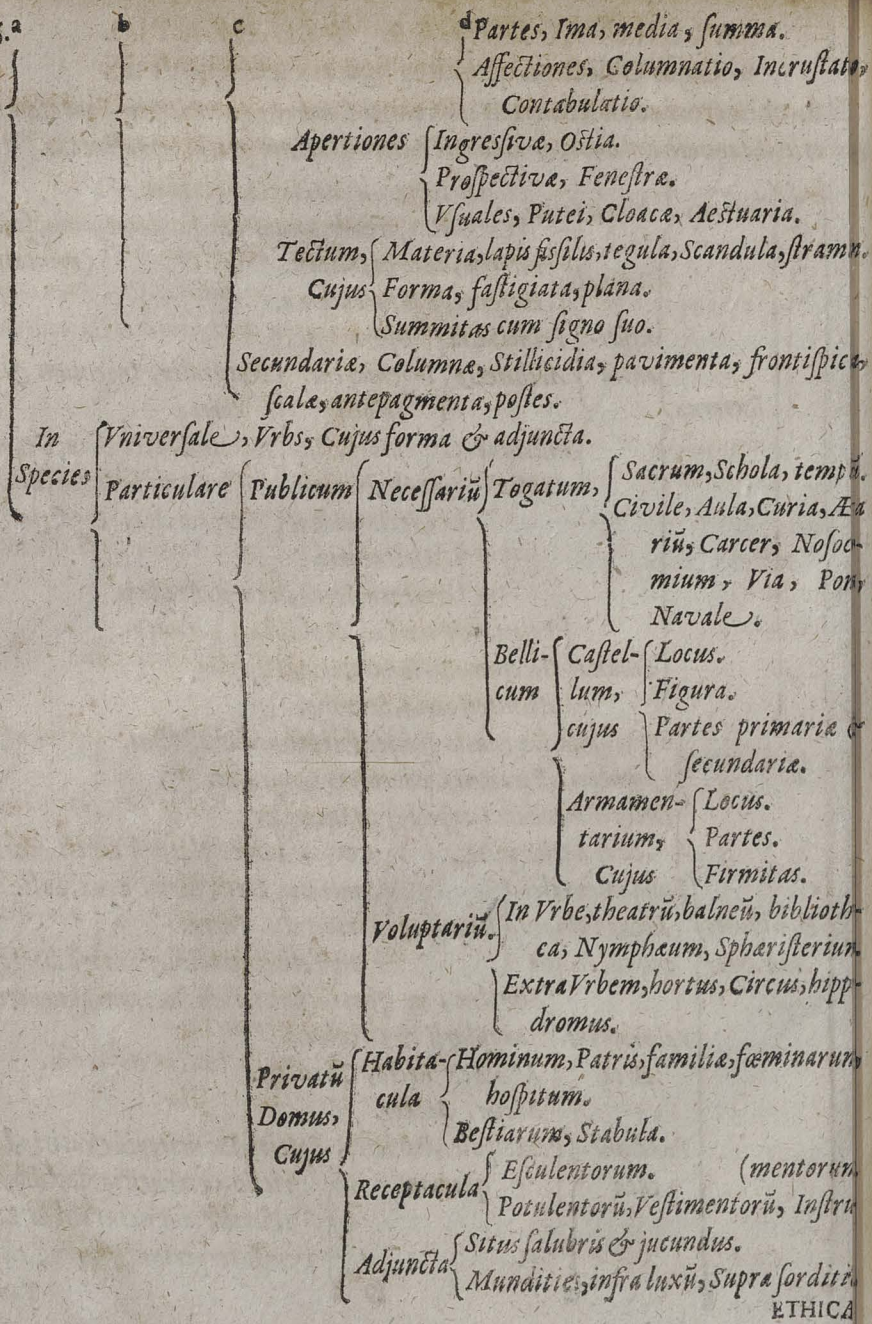 a b c d Partes, Ima, media, ſumma.
Affectiones, Columnatio, Incruſtatio,
Contabulatio.
Apertiones Ingreſſivæ, Oſtia.
Proſpectivæ, Feneſtræ.
Vſuales, Putei, Cloacæ, Aeſtuaria.
Tectum, Materia, lapis fisſilis, tegula, Scandula, ſtramn.
Cujus Forma, faſtigiata, plana.
Summitas cum ſigno ſuo.
Secundariæ, Columnæ, Stillicidia, pavimenta, frontiſpic
ſcalæ, antepagmenta, poſtes.
In Vniverſale, Vrbs, Cujus forma & adjuncta.
Species Particulare Publicum Neceſſariũ Togatum, Sacrum, Schola, templũ.
Civile, Aula, Curia, Æra
riũ, Carcer, Noſoco-
mium, Via, Pons,
Navale.
Belli- Caſtel- Locus.
cum lum, Figura.
cujus Partes primariæ &
ſecundariæ.
Armamen- Locus.
tarium, Partes.
Cujus Firmitas.
Voluptariũ. In Vrbe, theatrũ, balneũ, biblioth-
ca, Nymphæum, Sphæriſterium
Extra Vrbem, hortus, Circus, hipp-
dromus.
Privatũ Habita- Hominum, Patris, familiæ, fœminarum
Domus, cula hoſpitum.
Cujus Beſtiarum, Stabula.
Receptacula Eſculentorum. (mentorum
Potulentorũ, Veſtimentorũ, Inſtru
Adjuncta Situs ſalubris & jucundus.
Mundities, infra luxũ, Supra ſorditi
ETHICA